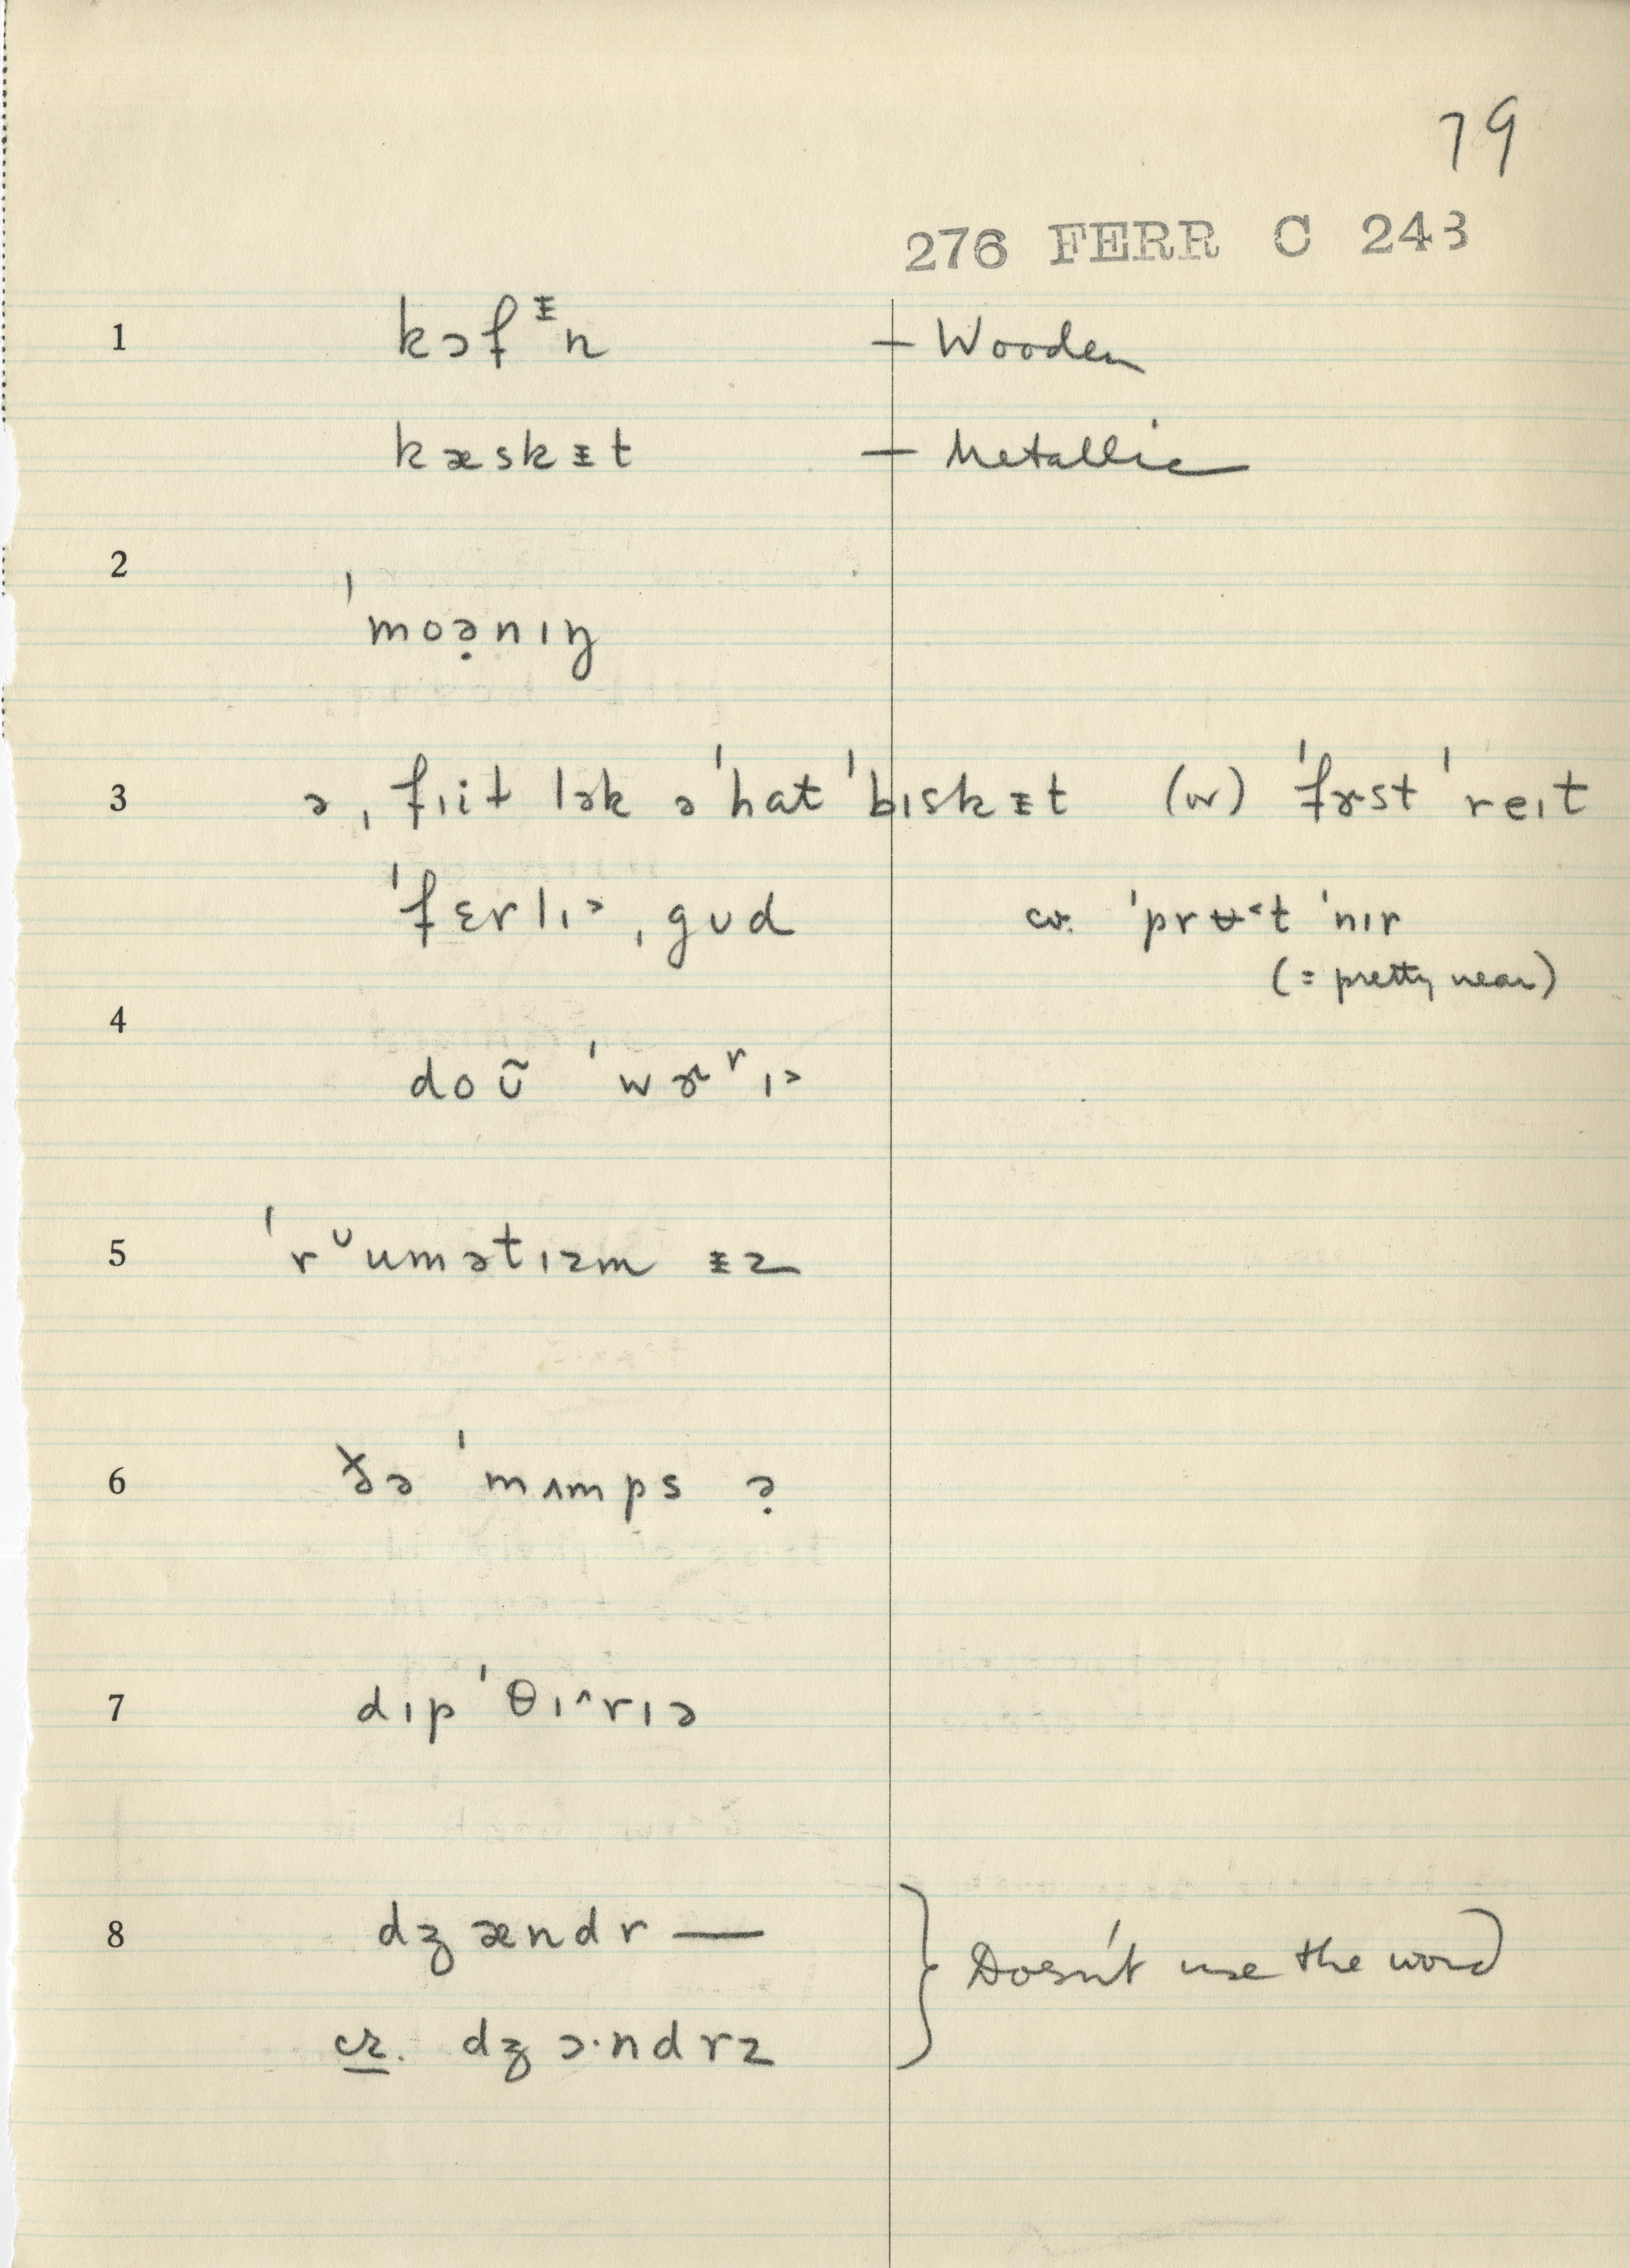 79
276 FERR C 243
1 kɔfᵻn — Wooden
kæskᵻt — Metallic
2
ˈmoə̣nɪŋ
3 ə ˌfɪit lək ə ˈhat ˈbɪskᵻt (w) ˈfɝst ˈreɪt
ˈfɛrlɪ˃ ˌgʊd cr. ˈprʉ˂t ˈnɪr
(= pretty near)
4
doʊ̃ ˈwɝʳɪ˃
5 ˈrᶷumətɪzm ᵻz
6 ðə ˈmʌmps ə̣
7 dɪpˈθɪ^rɪə
8 dʒændr —
} Doesn't use the word
cr. dʒɔ·ndrz